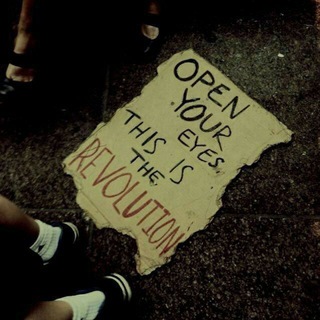 OPEN
YOUR
EYES.
THIS IS
THE
REVOLUTION